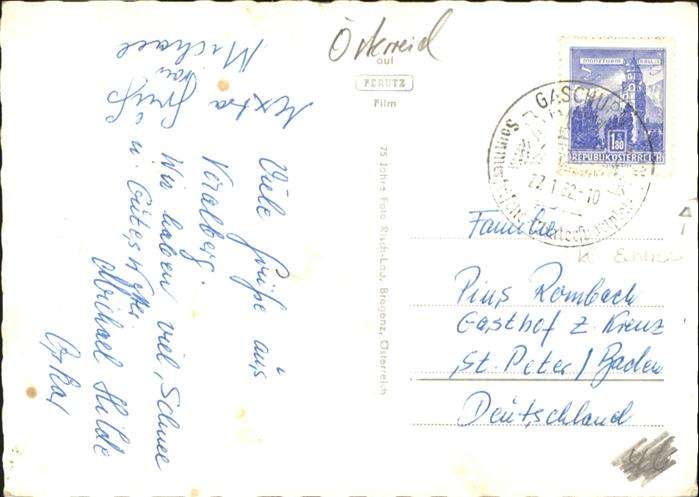 Viele Grüße aus
Voralberg.
Wir haben viel Schnee
u. gutes Wetter
Michael Hilde
Oskar
Extra
Gruß
von
Michael
Österreich
auf
PERUTZ
Film
75 Jahre Foto Risch-Lau, Bregenz, Österreich
GASCHURN
22.1.62-10
1.80
REPUBLIK ÖSTERREICH
Familie
Pius Rombach
Gasthof z. Kreuz
St. Peter / Baden
Deutschland